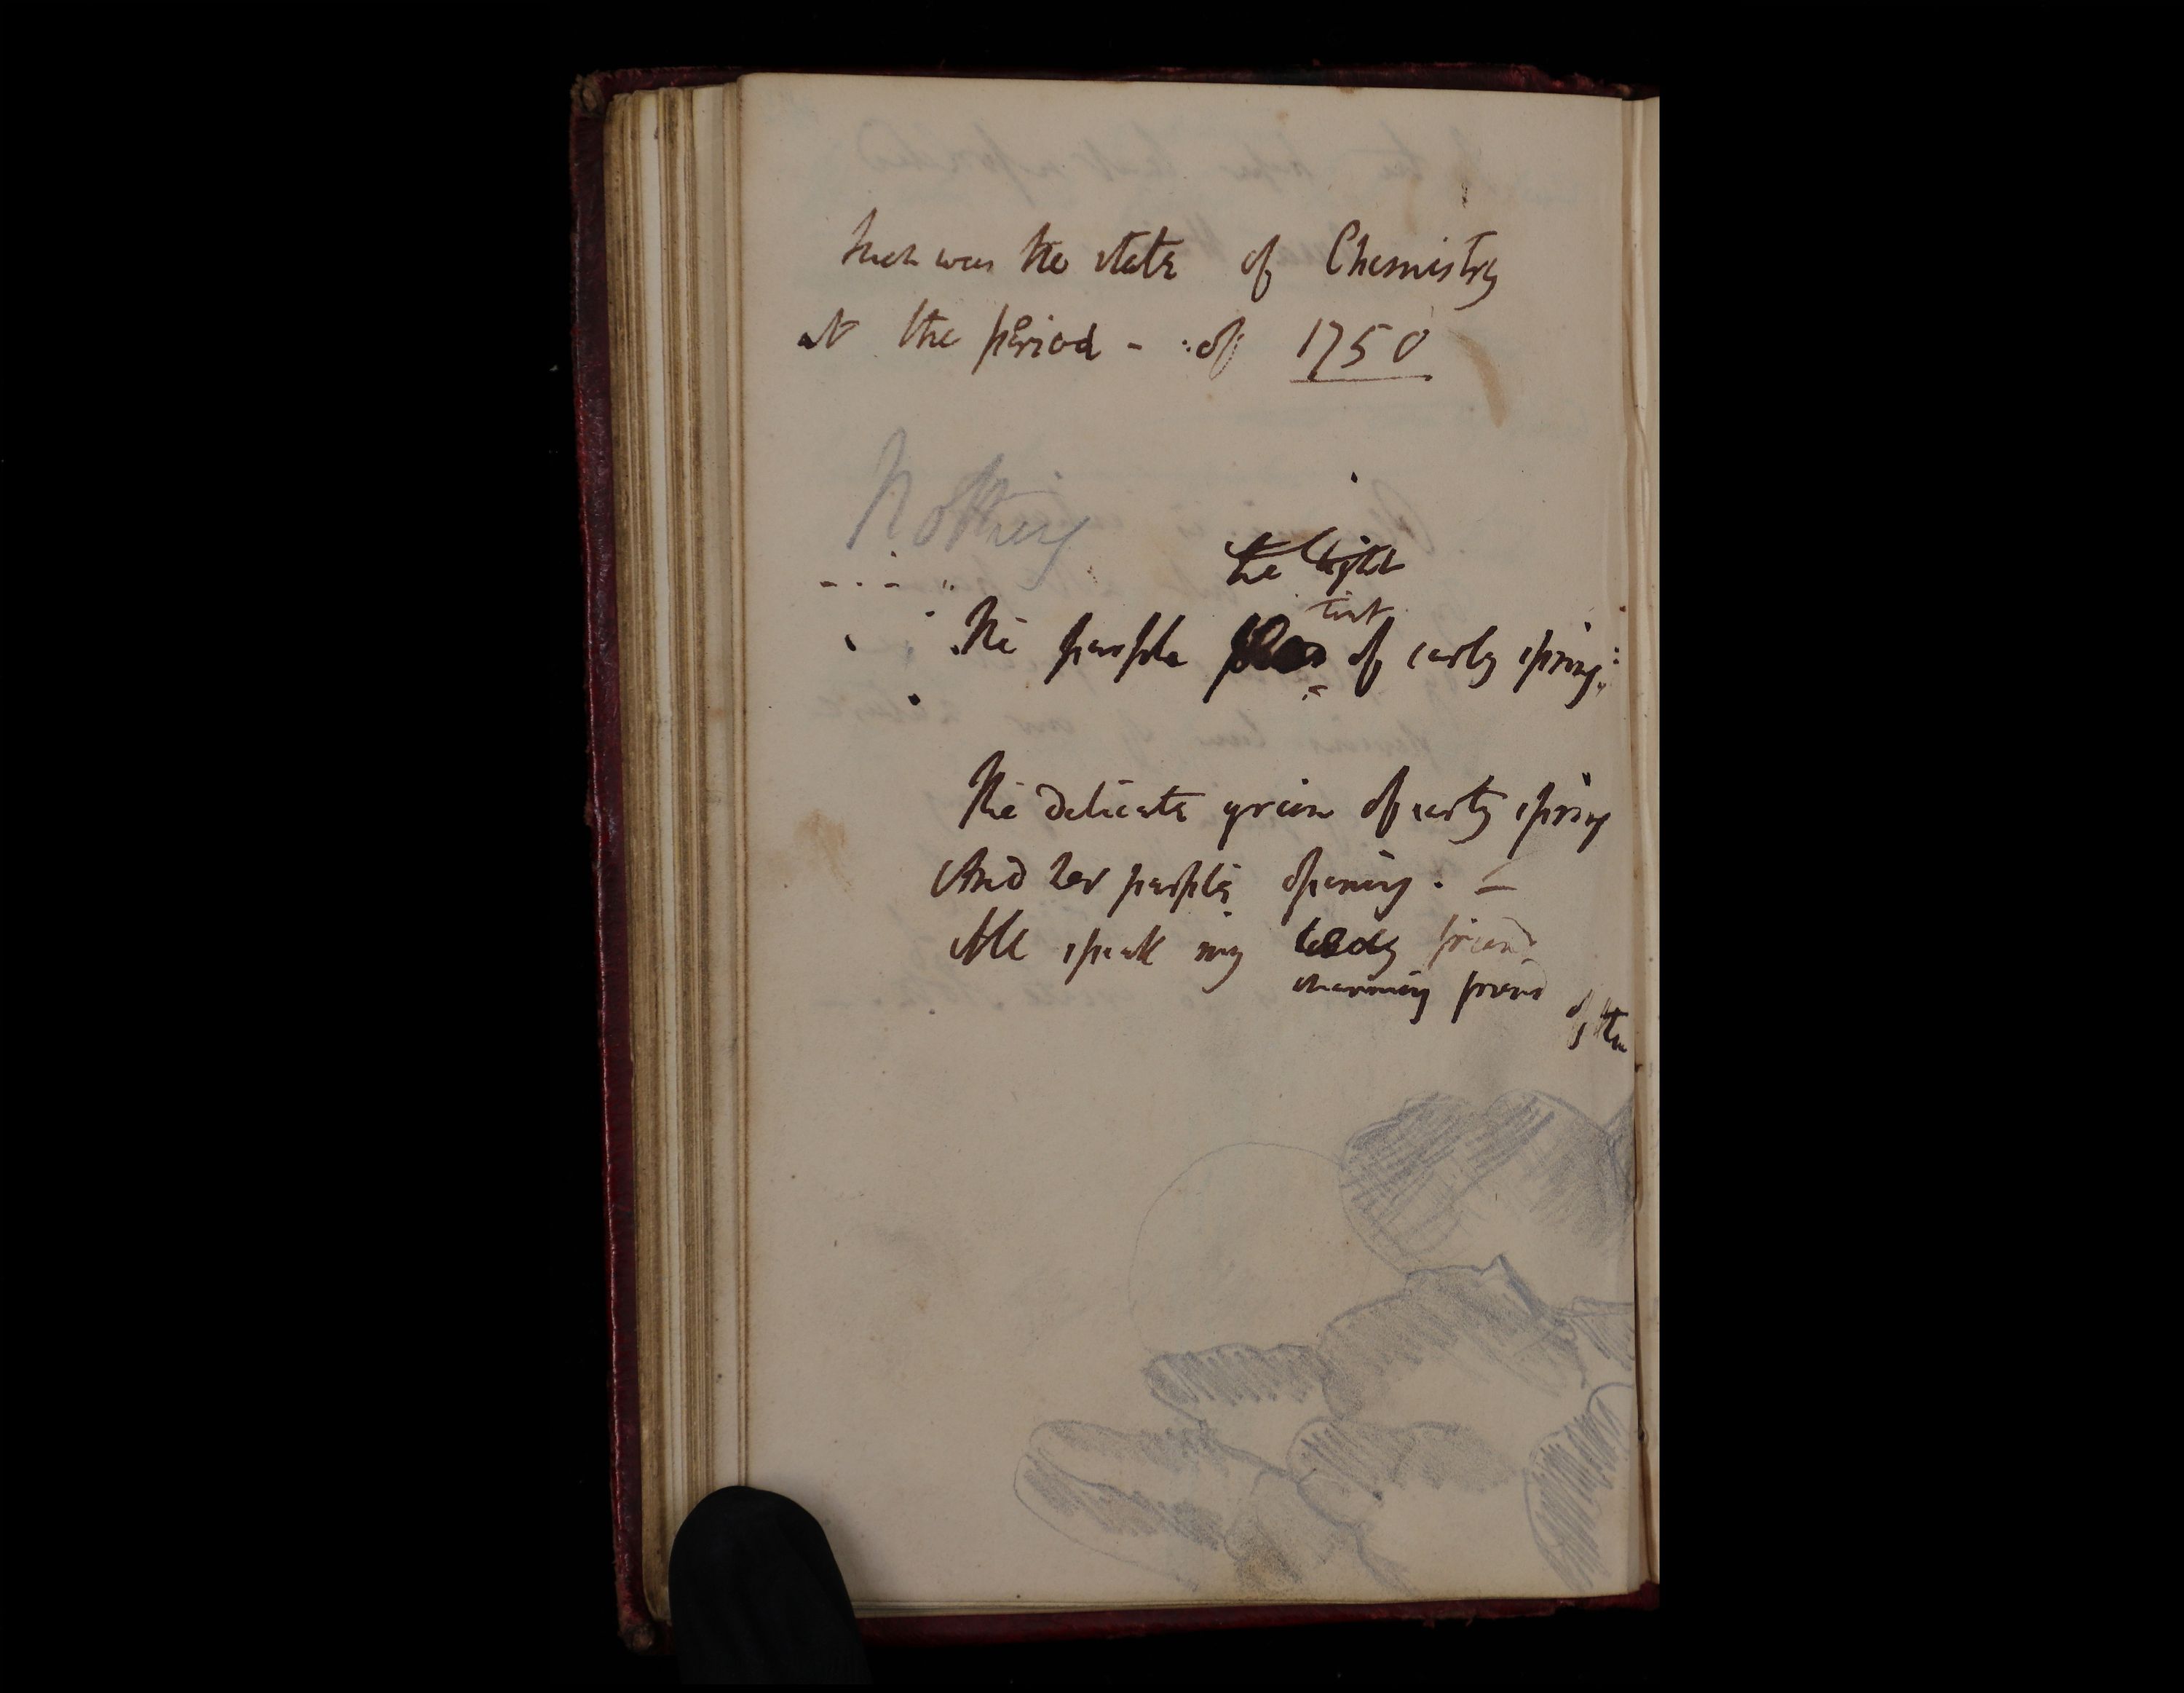 Such was the state of Chemistry
at the period - of 1750
Nothing
the light
tint
The purple of early spring.
The delicate green of early spring
And her purple opening. -
All speak my lady friend
charming friend
of the